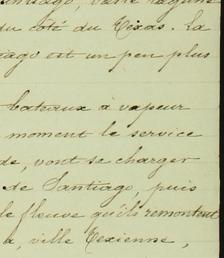 Santiago, vaste lagune
du côté du Texas. La
tiago est un peu plus
bateaux à vapeur
moment le service
de, vont se charger
de Santiago, puis
le fleuve qu'ils remontent
a, ville Texienne,